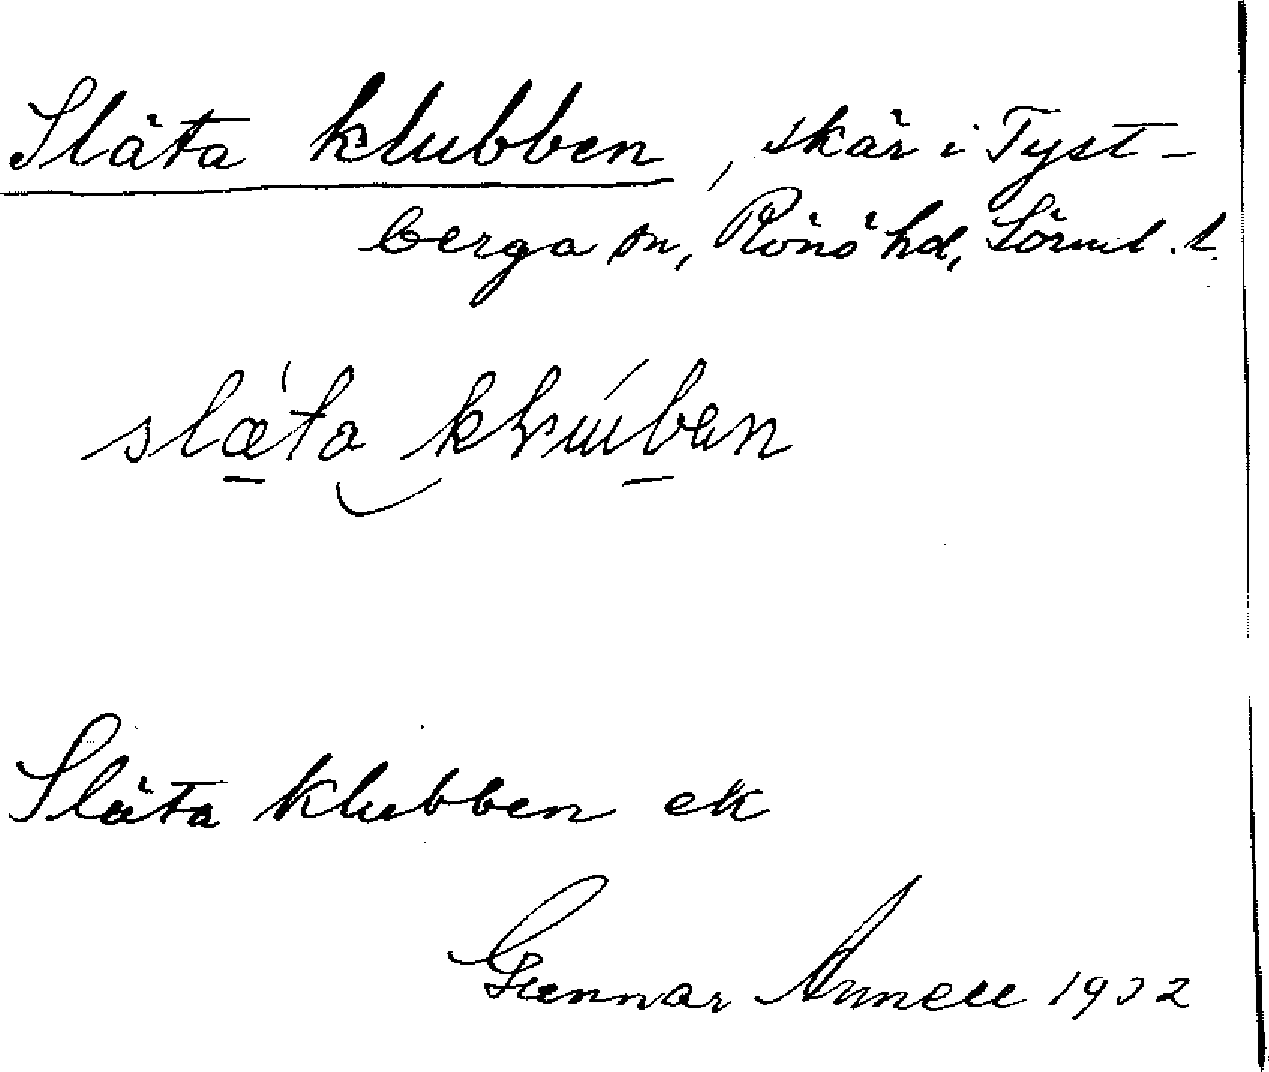 Släta klubben, skär i Tyst-
berga sn, Rönö hd, Sörml. l.
släta kluban
Släta klubben ek
Gunnar Annell 1932